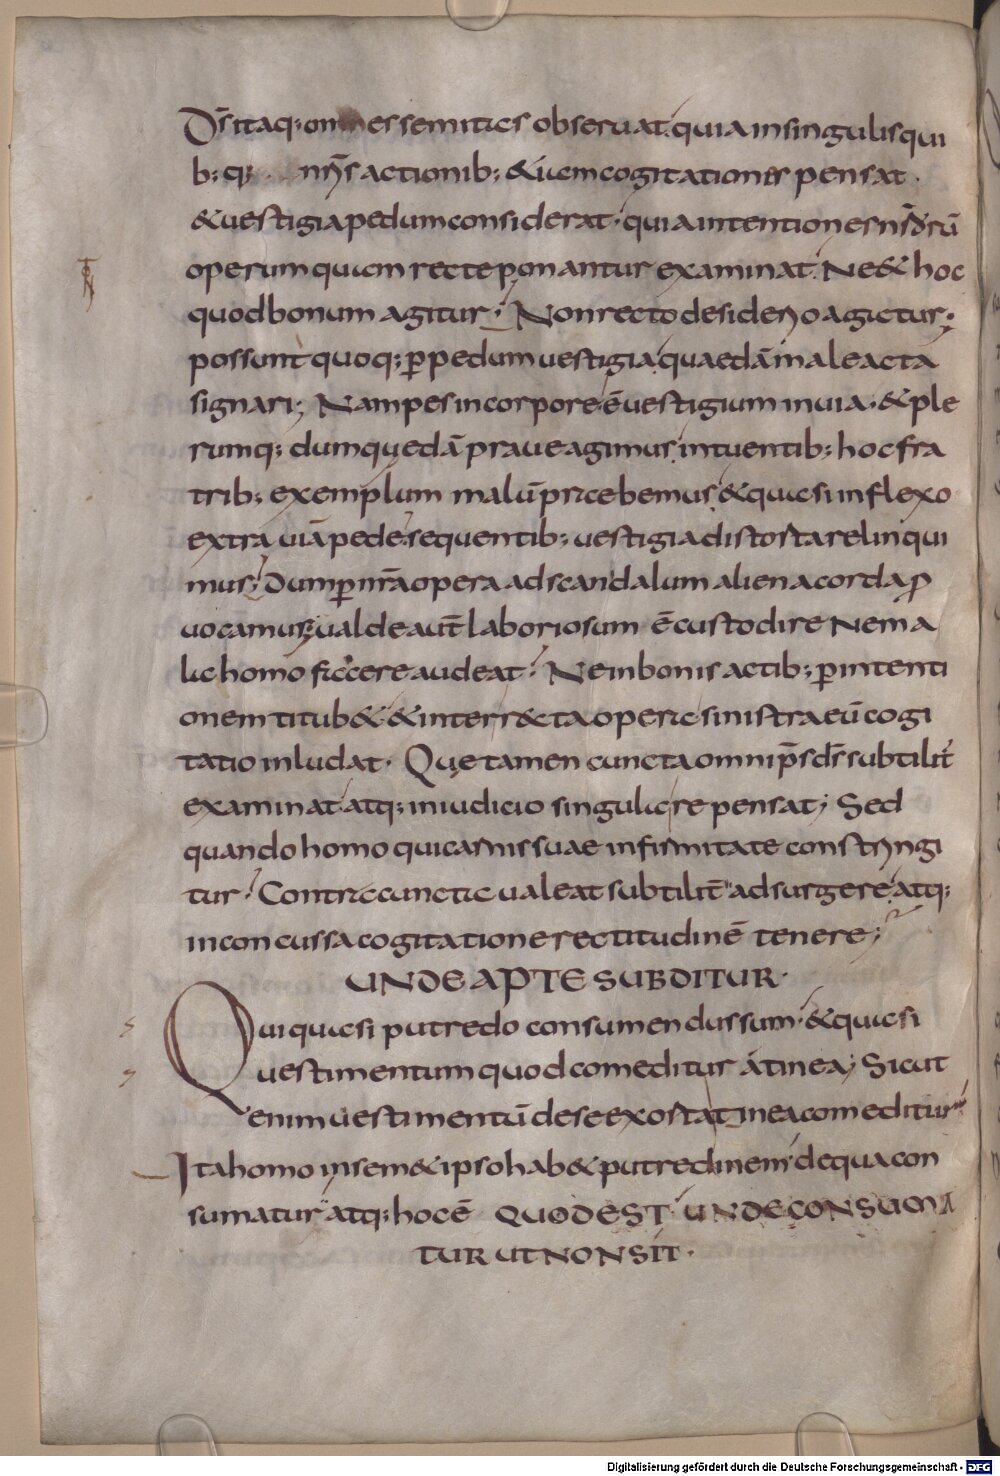 D̄s itaq; omnes semitas obseruat. quia in singulis qui
b;q; nr̄is actionib; & quem cogitationes pensat.
& uestigia pedum considerat. quia intentiones nr̄orū
operum quam recte ponantur examinat. Ne & hoc
quod bonum agitur; Non recto desiderio agatur;
possunt quoq; ꝑ pedum uestigia quaedā male acta
signari; Nam pes in corpore ē uestigium in uia. & ple
rumq; dum quedā praue agimus intuentib; hoc fra
trib; exemplum malū praebemus & quasi inflexo
extra uiā pede sequentib; uestigia distorta relinqui
mus; Dum ꝑ nr̄a opera ad scandalum aliena corda ꝓ
uocamus; ualde aut̄ laboriosum ē custodire Ne ma
la homo facere audeat; Ne in bonis actib; ꝑ intenti
onem titub& & inter r&ta opera sinistra eū cogi
tatio inludat. Quę tamen cuncta omnip̄s d̄s subtilit̄
examinat atq; in iudicio singula repensat; Sed
quando homo qui carnis suae infirmitate constringi
tur; Contra cuncta ualeat subtilit̄ adsurgere atq;
inconcussa cogitatione rectitudinē tenere;
UNDE APTE SUBDITUR.
Qui quasi putredo consumendus sum. & quasi
uestimentum quod comeditur a tinea; Sicut
enim uestimentū de se exorta tinea comeditur
Ita homo in sem&ipso hab& putredinem de qua con
sumatur atq; hoc ē QUOD EST UNDE CONSUMA
TUR UT NON SIT.
Digitalisierung gefördert durch die Deutsche Forschungsgemeinschaft - DFG